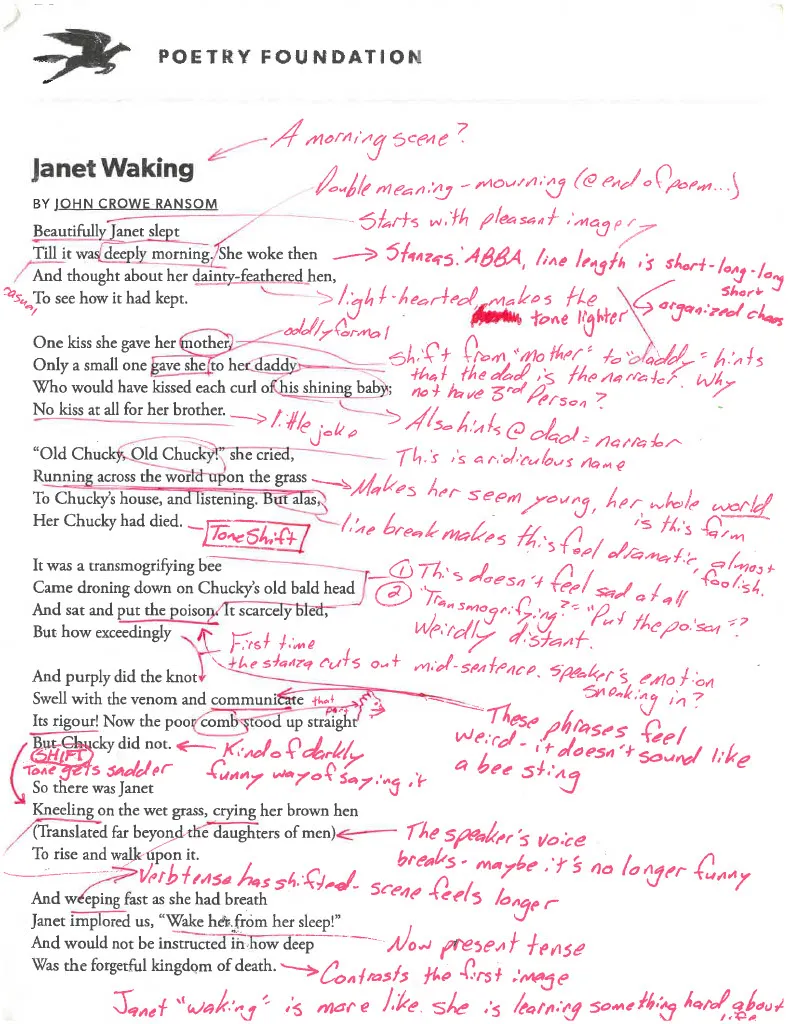 POETRY FOUNDATION
A morning scene?
Janet Waking
Double meaning - mourning (@ end of poem...)
BY JOHN CROWE RANSOM
Starts with pleasant imagery
Beautifully Janet slept
Till it was deeply morning. She woke then
Stanzas: ABBA, line length is short-long-long
short
And thought about her dainty-feathered hen,
To see how it had kept.
casual
light-hearted, makes the
tone lighter
organized chaos
oddly formal
One kiss she gave her mother,
Only a small one gave she to her daddy
Who would have kissed each curl of his shining baby;
No kiss at all for her brother.
Shift from "mother" to "daddy" = hints
that the dad is the narrator. Why
not have 3rd Person?
little joke
Also hints @ dad = narrator
"Old Chucky, Old Chucky!" she cried,
This is a ridiculous name
Running across the world upon the grass
Makes her seem young, her whole world
is this farm
To Chucky's house, and listening. But alas,
Her Chucky had died.
Tone Shift
line break makes this feel dramatic, almost
foolish.
It was a transmogrifying bee
Came droning down on Chucky's old bald head
And sat and put the poison. It scarcely bled,
But how exceedingly
1 This doesn't feel sad at all
2 "Transmogrifying?" = "Put the poison"?
Weirdly distant.
First time
the stanza cuts out mid-sentence. Speaker's emotion
sneaking in?
And purply did the knot
Swell with the venom and communicate
that part
Its rigour! Now the poor comb stood up straight
But Chucky did not.
These phrases feel
weird - it doesn't sound like
a bee sting
Kind of darkly
funny way of saying it
SHIFT
Tone gets sadder
So there was Janet
Kneeling on the wet grass, crying her brown hen
(Translated far beyond the daughters of men)
To rise and walk upon it.
The speaker's voice
breaks - maybe it's no longer funny
Verb tense has shifted - scene feels longer
And weeping fast as she had breath
Janet implored us, "Wake her from her sleep!"
And would not be instructed in how deep
Was the forgetful kingdom of death.
Now present tense
Contrasts the first image
Janet "waking" is more like she is learning something hard about
life